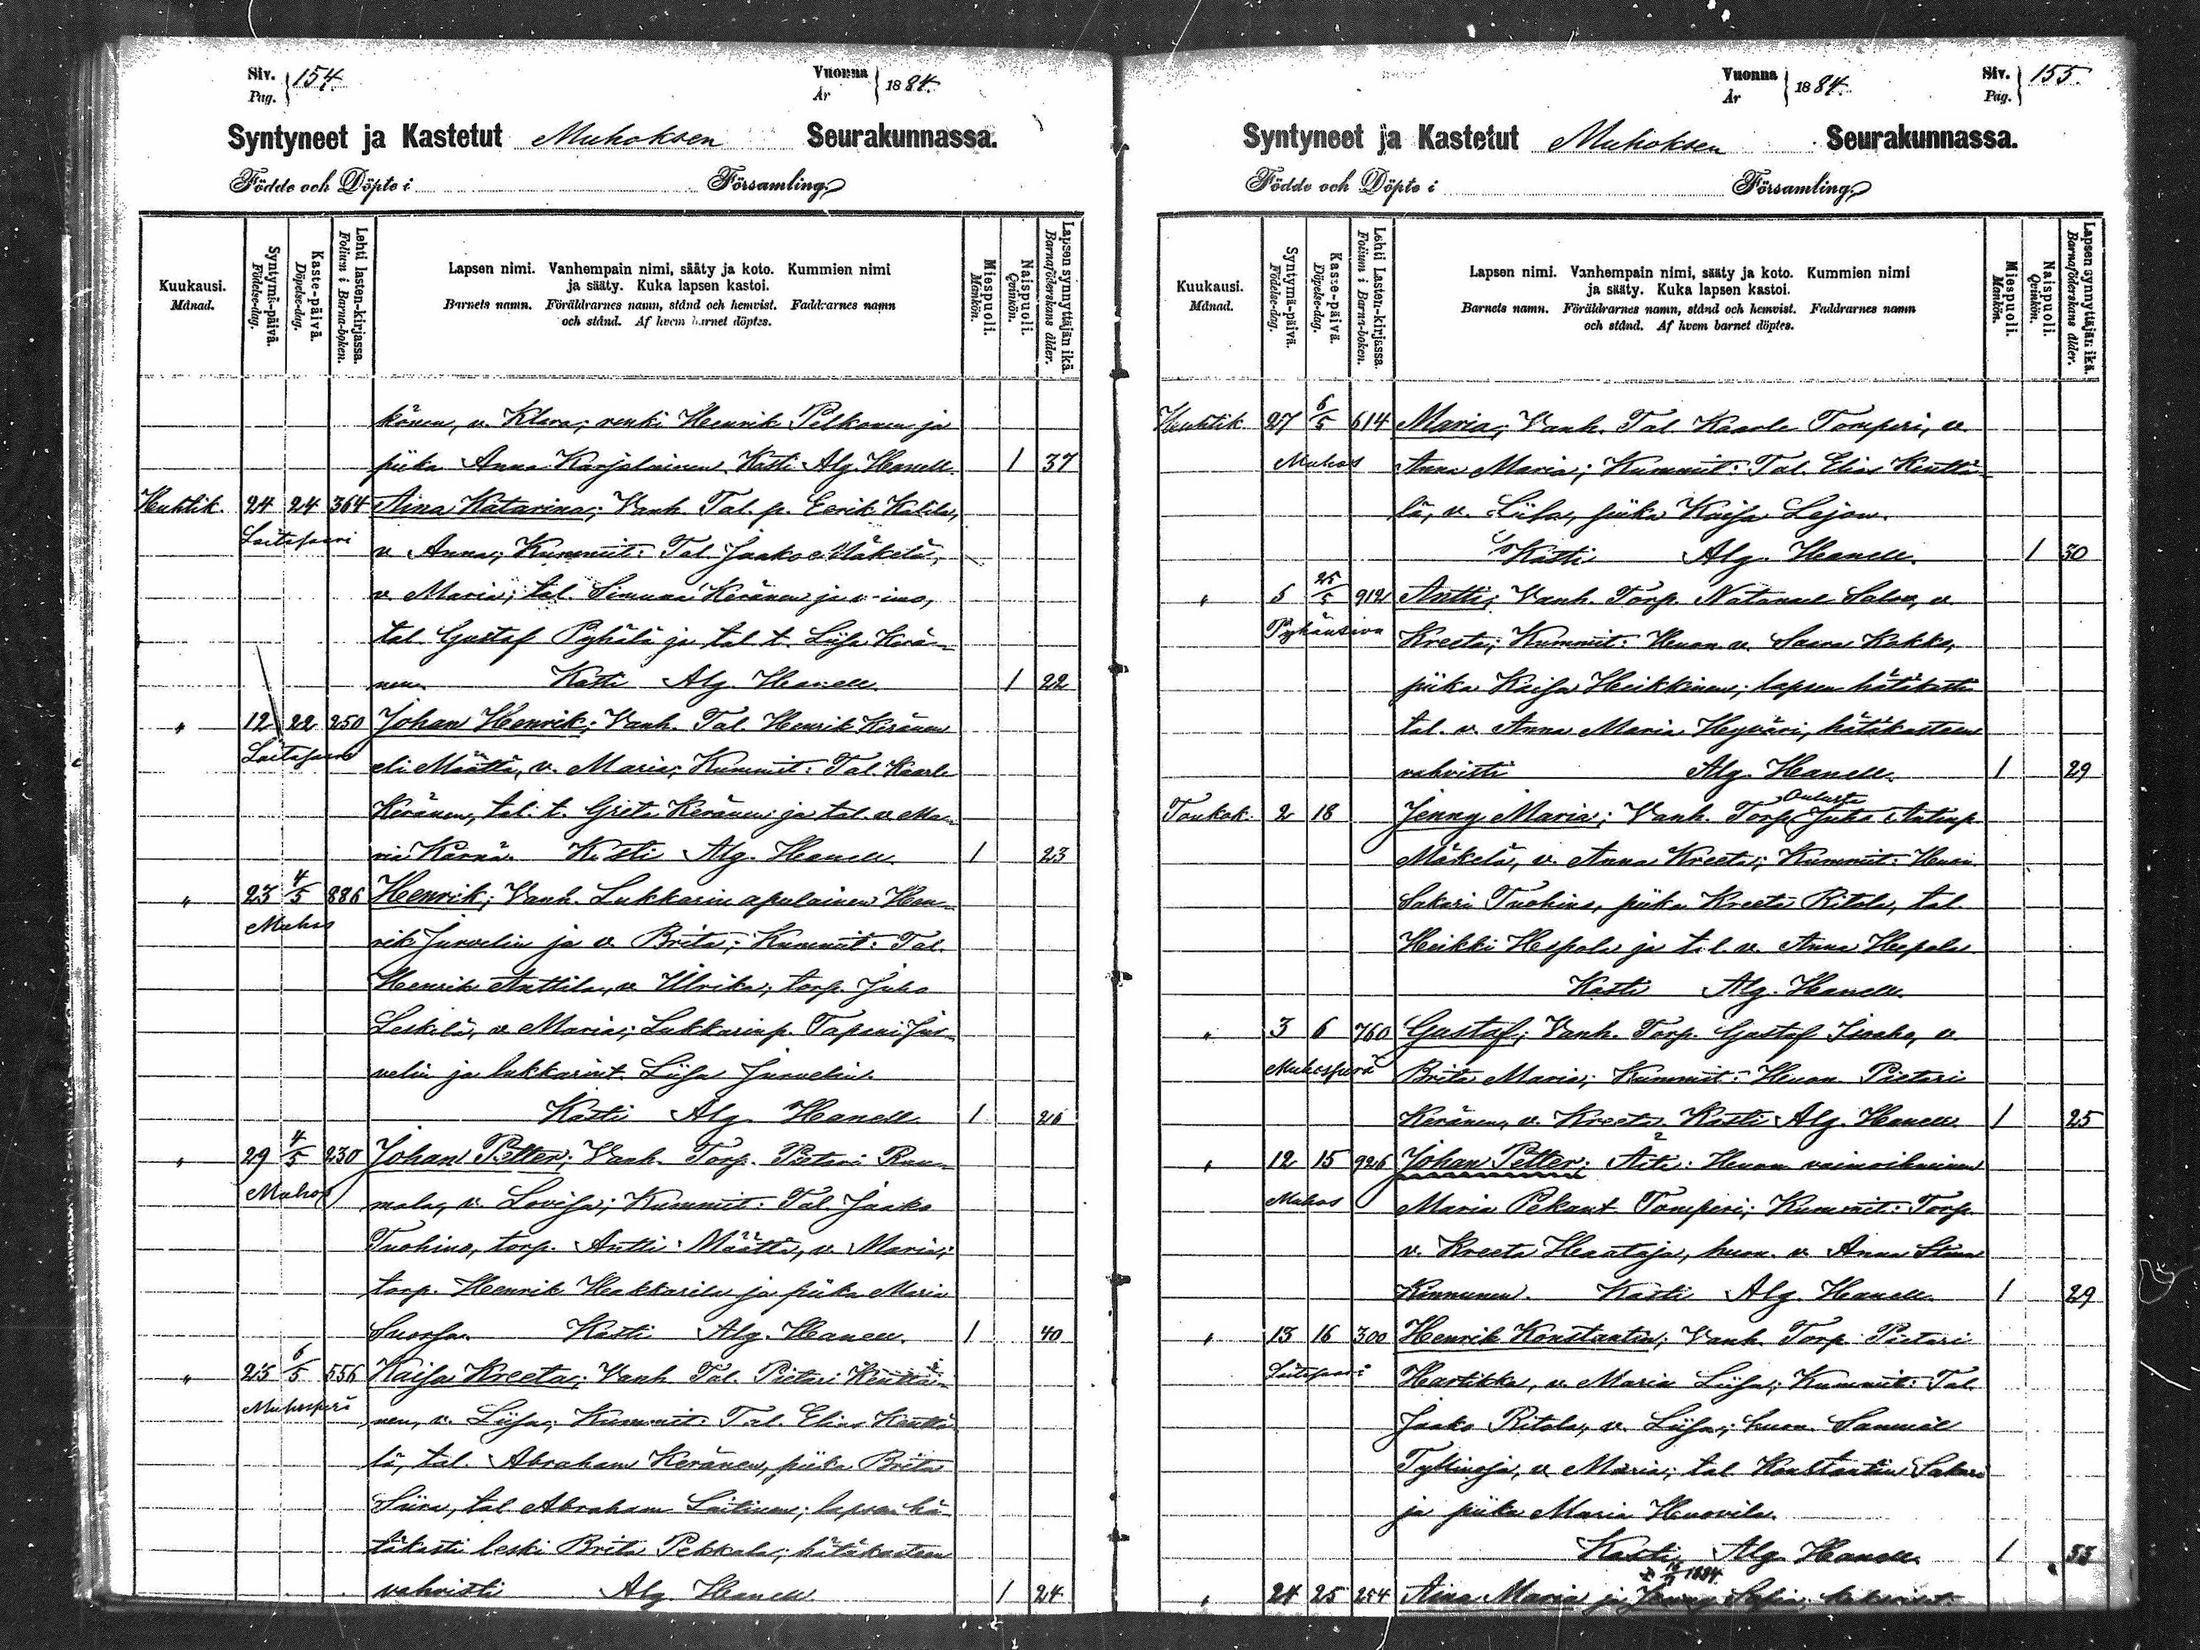 Siv. 154.
Pag.
Vuonna 1884.
År
Syntyneet ja Kastetut Muhoksen Seurakunnassa.
Födde och Döpte i Församling.
Kuukausi.
Månad.
Syntymä-päivä.
Födelse-dag.
Kaste-päivä.
Döpelse-dag.
Lehti lasten-kirjassa.
Folium i Barna-boken.
Lapsen nimi. Vanhempain nimi, sääty ja koto. Kummien nimi
ja sääty. Kuka lapsen kastoi.
Barnets namn. Föräldrarnes namn, stånd och hemvist. Faddrarnes namn
och stånd. Af hvem barnet döptes.
Miespuoli.
Mankön.
Naispuoli.
Qvinkön.
Lapsen synnyttäjän ikä.
Barnaföderskans ålder.
könen, v. Klara; renki Henrik Pelkonen ja
piika Anna Karjalainen. Kasti Alg. Hanell. 1 37
Huhtik. 24 24 364 Aina Katarina; Vanh. Tal. p. Eerik
Laitasaari v. Anna; Kummit: Tal. Jaako Mäkelä,
v. Maria; tal. Simuna Keränen ja v-imo,
tal. Gustaf Pyhälä ja tal. t. Liisa Kerä-
nen. Kasti Alg. Hanell. 1 22
" 12 22 250 Johan Henrik; Vanh. Tal. Henrik Keränen
Laitasaari eli Määttä, v. Maria; Kummit: Tal. Kaarle
Keränen, tal. t. Greta Keränen ja tal. v. Ma-
ria Kärnä. Kasti Alg. Hanell. 1 23
" 23 4/5 886 Henrik; Vanh. Lukkarin apulainen Hen-
Muhos rik Jurvelin ja v. Brita; Kummit: Tal.
Henrik Anttila, v. Ulrika; torp. Juho
Leskelä, v. Maria; Lukkarinp. Tapani Jur-
velin ja lukkarint. Liisa Jurvelin.
Kasti Alg. Hanell. 1 26
" 29 4/5 230 Johan Petter; Vanh. Torp. Pietari
Muhos v. Lovisa; Kummit: Tal. Jaako
Tuohino, torp. Antti Määttä, v. Maria;
torp. Henrik Hakkarila ja piika Maria
Kasti Alg. Hanell. 1 40
" 25 6/5 556 Kaisa Kreeta; Vanh. Tal. Pietari
Muhosperä nen, v. Liisa; Kummit: Tal. Elias Kentti-
lä, tal. Abraham Keränen, piika Brita
tal. Abraham Laitinen; lapsen hä-
täkasti leski Brita Pekkala; hätäkasteen
vahvisti Alg. Hanell. 1 24
Vuonna 1884.
År
Siv. 155.
Pag.
Syntyneet ja Kastetut Muhoksen Seurakunnassa.
Födde och Döpte i Församling.
Kuukausi.
Månad.
Syntymä-päivä.
Födelse-dag.
Kaste-päivä.
Döpelse-dag.
Lehti Lasten-kirjassa.
Folium i Barna-boken.
Lapsen nimi. Vanhempain nimi, sääty ja koto. Kummien nimi
ja sääty. Kuka lapsen kastoi.
Barnets namn. Föräldrarnes namn, stånd och hemvist. Faddrarnes namn
och stånd. Af hvem barnet döptes.
Miespuoli.
Mankön.
Naispuoli.
Qvinkön.
Lapsen synnyttäjän ikä.
Barnaföderskans ålder.
Huhtik. 27 6/5 614 Maria; Vanh. Tal. Kaarle Tomperi, v.
Muhos Anna Maria; Kummit: Tal. Elias Kentti-
lä, v. Liisa, piika Kaisa
Kasti Alg. Hanell. 1 30
" 5 25/5 912 Antti; Vanh. Torp. Natanael Salo, v.
Kreeta; Kummit: Huon. v. Saara Kakko,
piika Kaisa Heikkinen; lapsen hätäkasti
tal. v. Anna Maria Hyväri, hätäkasteen
vahvisti Alg. Hanell. 1 29
Toukok. 2 18 Jenny Maria; Vanh. Torp. Oulusta Juho Antinp.
Mäkelä, v. Anna Kreeta; Kummit:
Sakari Tuohino, piika Kreeta Ritola, tal.
Heikki Hepola ja tal. v. Anna Hepola.
Kasti Alg. Hanell.
" 3 6 760 Gustaf; Vanh. Torp. Gustaf v.
Muhosperä Brita Maria; Kummit: Huon. Pietari
Keränen, v. Kreeta. Kasti Alg. Hanell. 1 25
" 12 15 926 Johan Petter; Äiti: Huon. vaimoihminen
Muhos Maria Pekant. Tomperi; Kummit: Torp.
v. Kreeta Haataja, huon. v. Anna Stina
Kinnunen. Kasti Alg. Hanell. 1 29
" 13 16 300 Henrik Konstantin; Vanh. Torp. Pietari
Laitasaari Hartikka, v. Maria Liisa; Kummit: Tal.
Jaako Ritola, v. Liisa; huon. Samuel
Tyllinoja, v. Maria; tal. Konstantin Sakari
ja piika Maria Huovila.
Kasti Alg. Hanell. 1 33
" 24 25 254 Aina Maria ja Jenny Sofia;